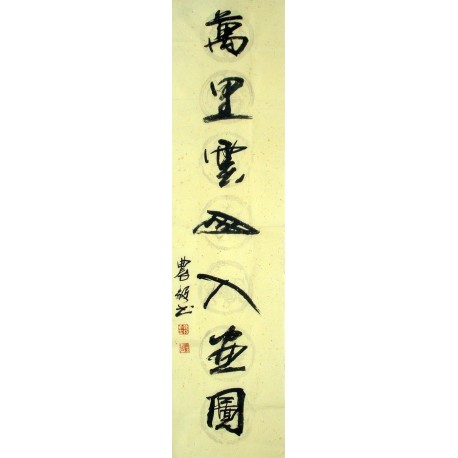 萬里雲山入画圖